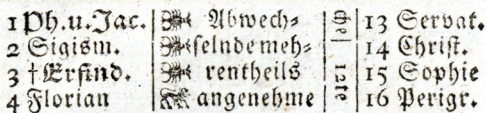 1 Ph. u. Jac. Abwech- 13 Servat.
2 Sigism. selnde meh- 14 Christ.
3 † Erfind. rentheils 15 Sophie
4 Florian angenehme 16 Perigr.